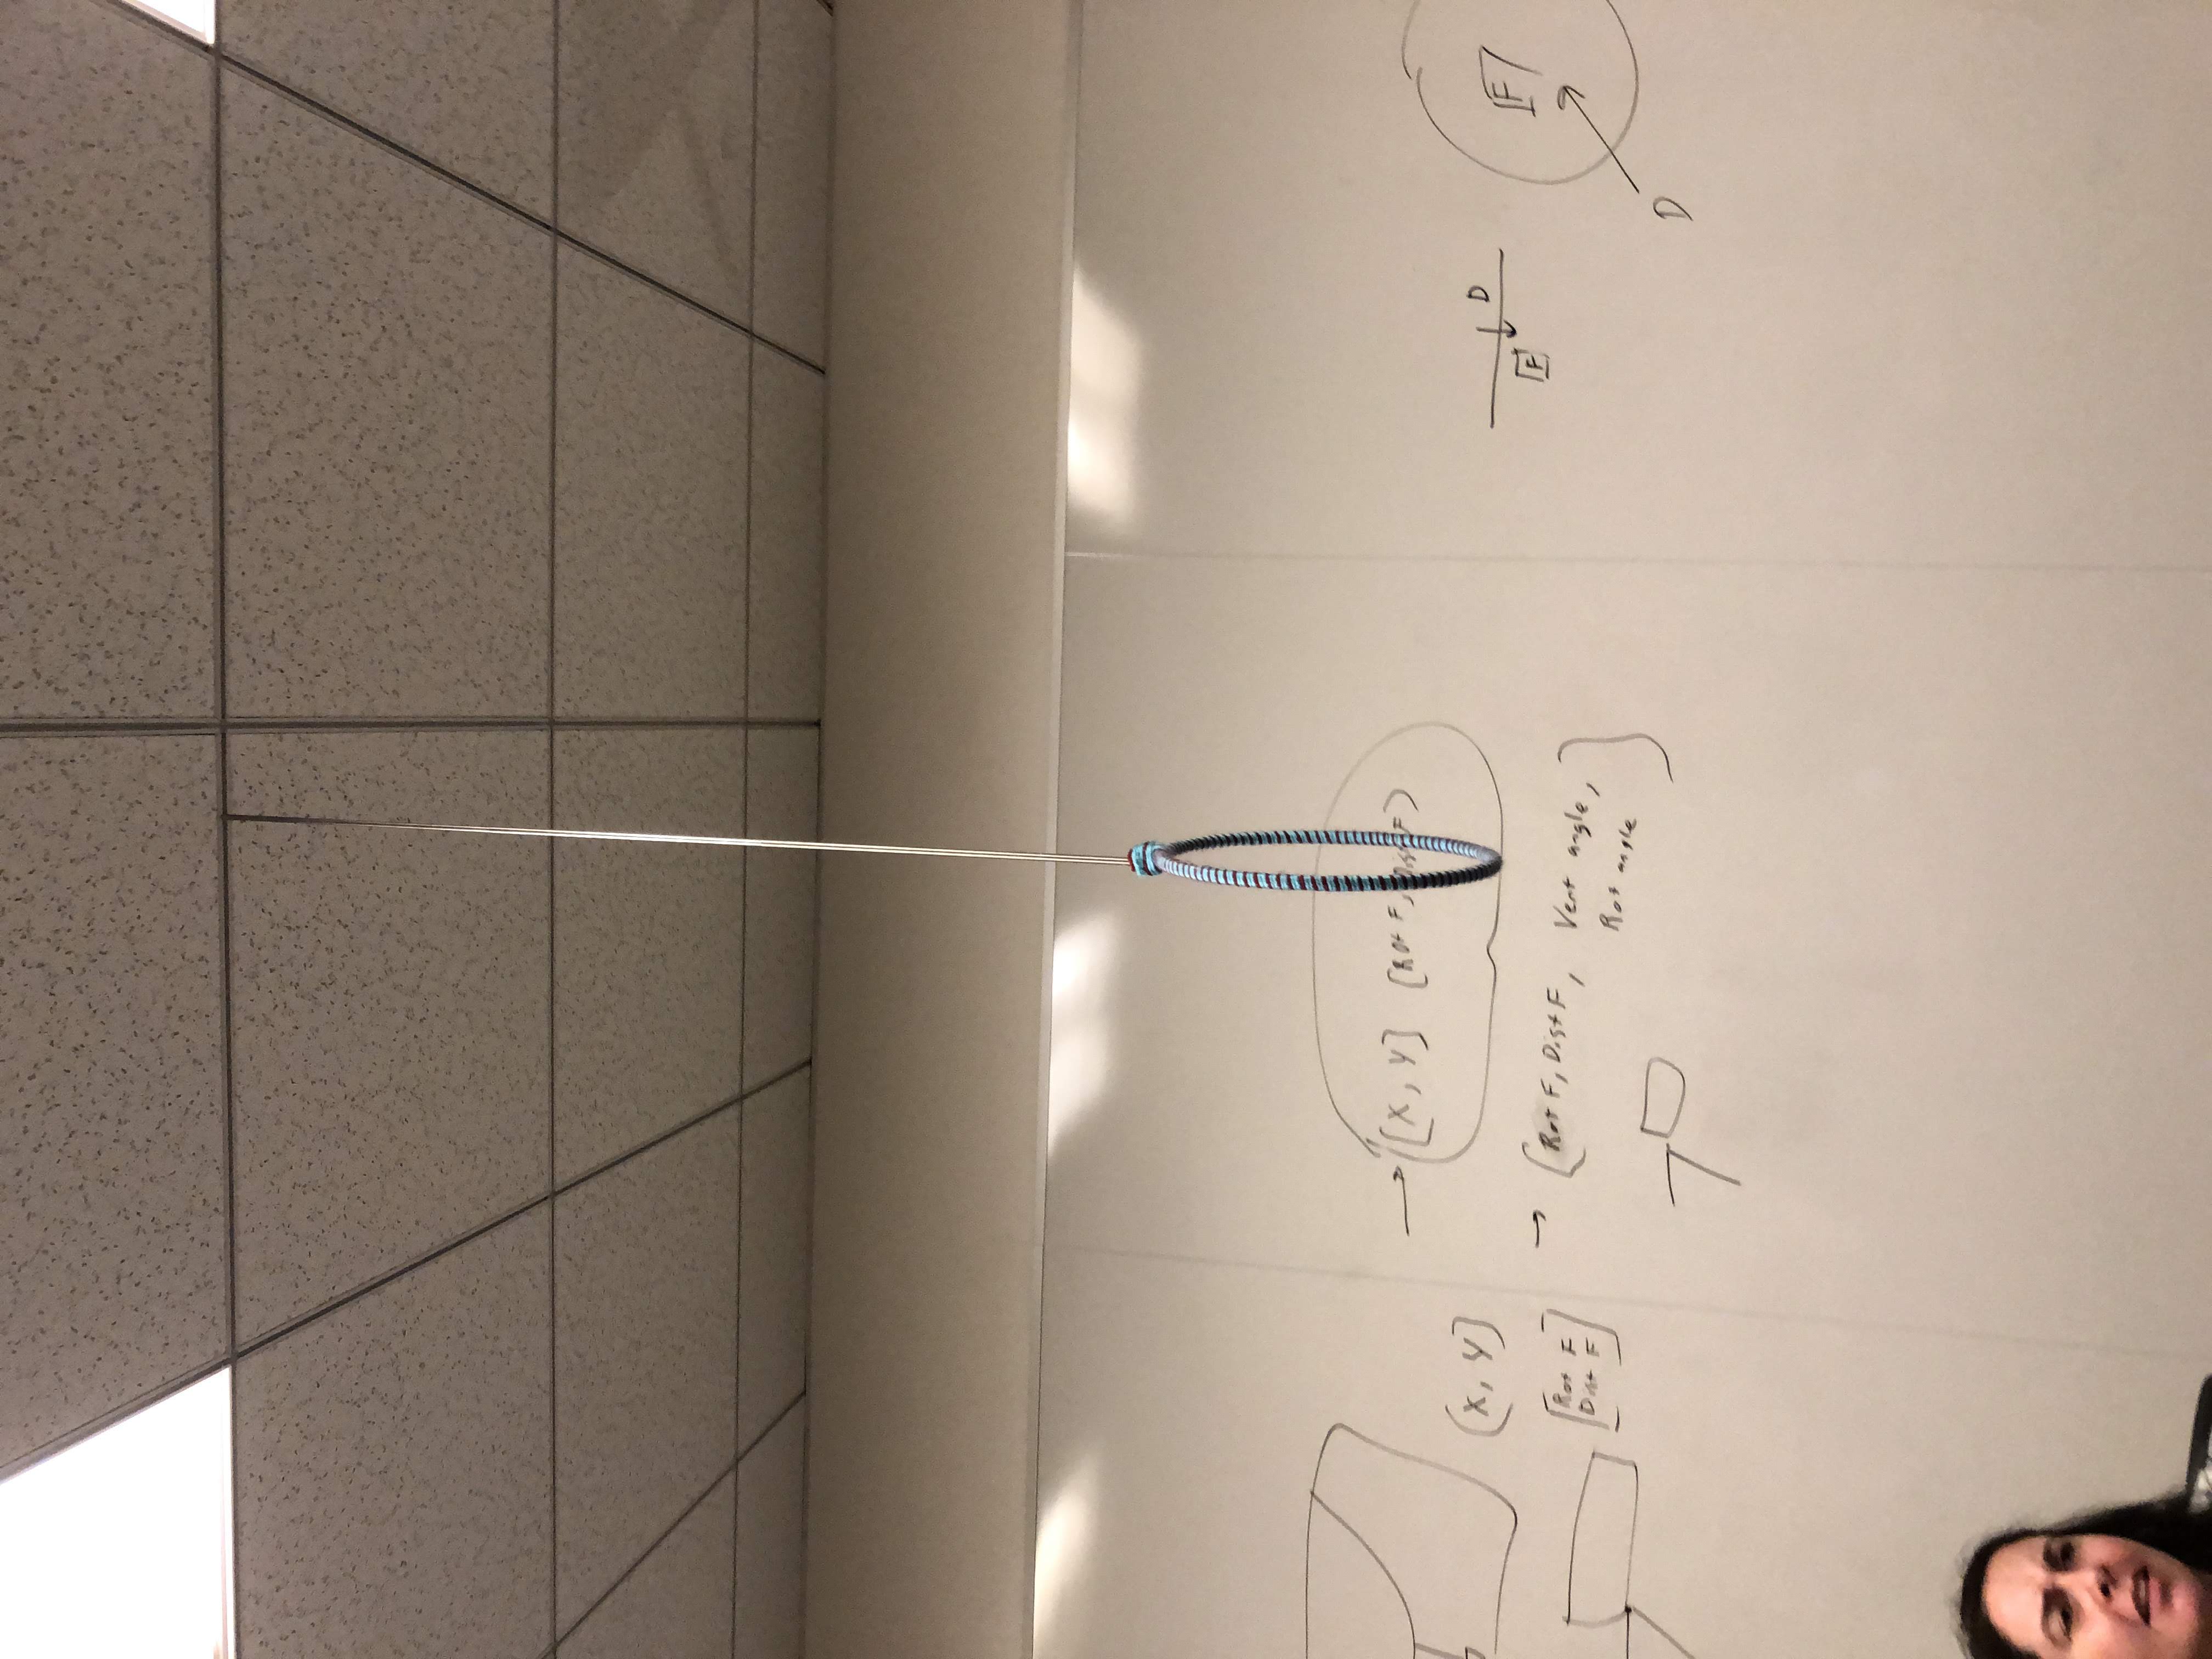 (X, Y)
[Rot F
Dist F]
→ [X, Y] (Rot F, Dist F)
→ [Rot F, Dist F, Vert angle,
Rot angle]
D
F
F
D